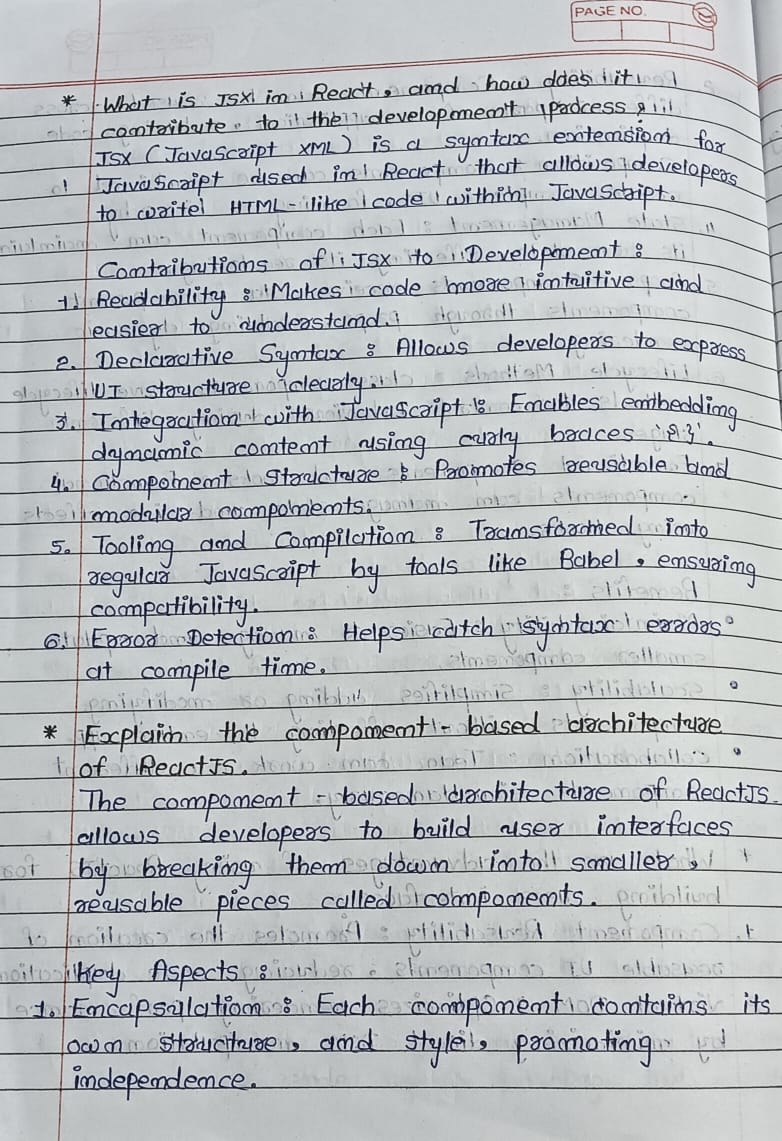 PAGE NO.
* What is JSX in React, and how does it
contribute to the development process ?
JSX (JavaScript XML) is a syntax extension for
JavaScript used in React that allows developers
to write HTML-like code within JavaScript.
Contributions of JSX to Development :
1. Readability : Makes code more intuitive and
easier to understand.
2. Declarative Syntax : Allows developers to express
UI structure clearly.
3. Integration with JavaScript : Enables embedding
dynamic content using curly braces '{}'.
4. Component Structure : Promotes reusable and
modular components.
5. Tooling and Compilation : Transformed into
regular JavaScript by tools like Babel, ensuring
compatibility.
6. Error Detection : Helps catch syntax errors
at compile time.
* Explain the component-based architecture
of ReactJS.
The component-based architecture of ReactJS
allows developers to build user interfaces
by breaking them down into smaller,
reusable pieces called components.
Key Aspects :
1. Encapsulation : Each component contains its
own structure, and style, promoting
independence.